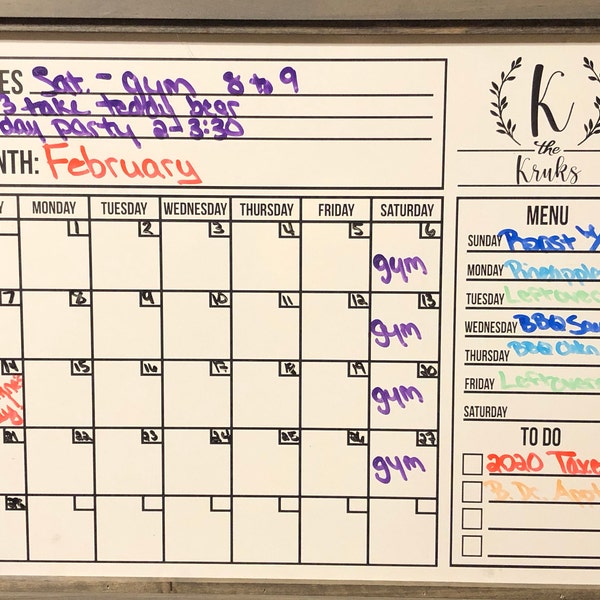 ES Sat. - gym 8 to 9
3 take teddy bear
day party 2-3:30
NTH: February
K
the
Kruks
Y MONDAY TUESDAY WEDNESDAY THURSDAY FRIDAY SATURDAY
1 2 3 4 5 6
gym
7 8 9 10 11 12 13
gym
14 15 16 17 18 19 20
gym
21 22 23 24 25 26 27
gym
28
MENU
SUNDAY Roast w/
MONDAY Pineapple
TUESDAY Leftovers
WEDNESDAY BBQ Sau
THURSDAY BBQ Chkn
FRIDAY Leftovers
SATURDAY
TO DO
2020 Taxe
B.Dc. Appl